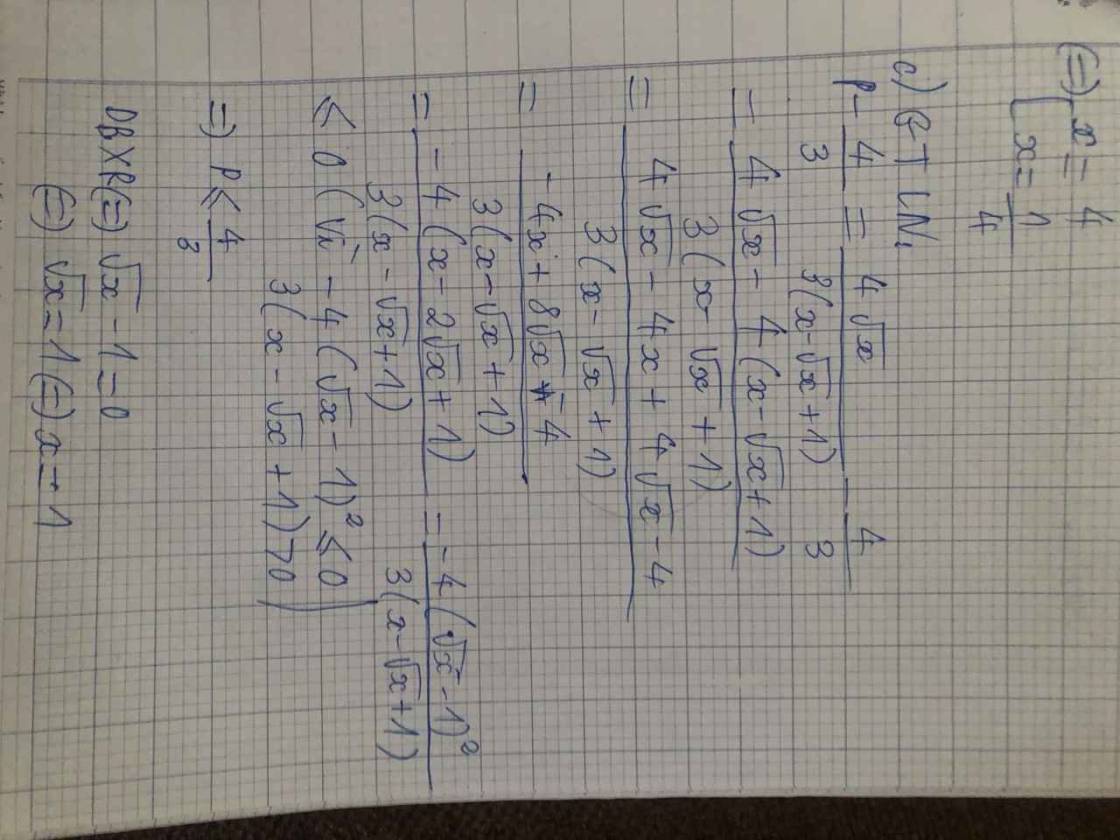 (=) [ x = 4
x = 1/4
c) GTLN
P - 4/3 = 4√x / 3(x-√x+1) - 4/3
= 4√x - 4(x-√x+1) / 3(x-√x+1)
= 4√x - 4x + 4√x - 4 / 3(x-√x+1)
= -4x + 8√x - 4 / 3(x-√x+1)
= -4(x-2√x+1) / 3(x-√x+1) = -4(√x-1)² / 3(x-√x+1)
≤ 0 (Vì -4(√x-1)² ≤ 0
3(x-√x+1) > 0)
=) P ≤ 4/3
DBXR (=) √x - 1 = 0
(=) √x = 1 (=) x = 1